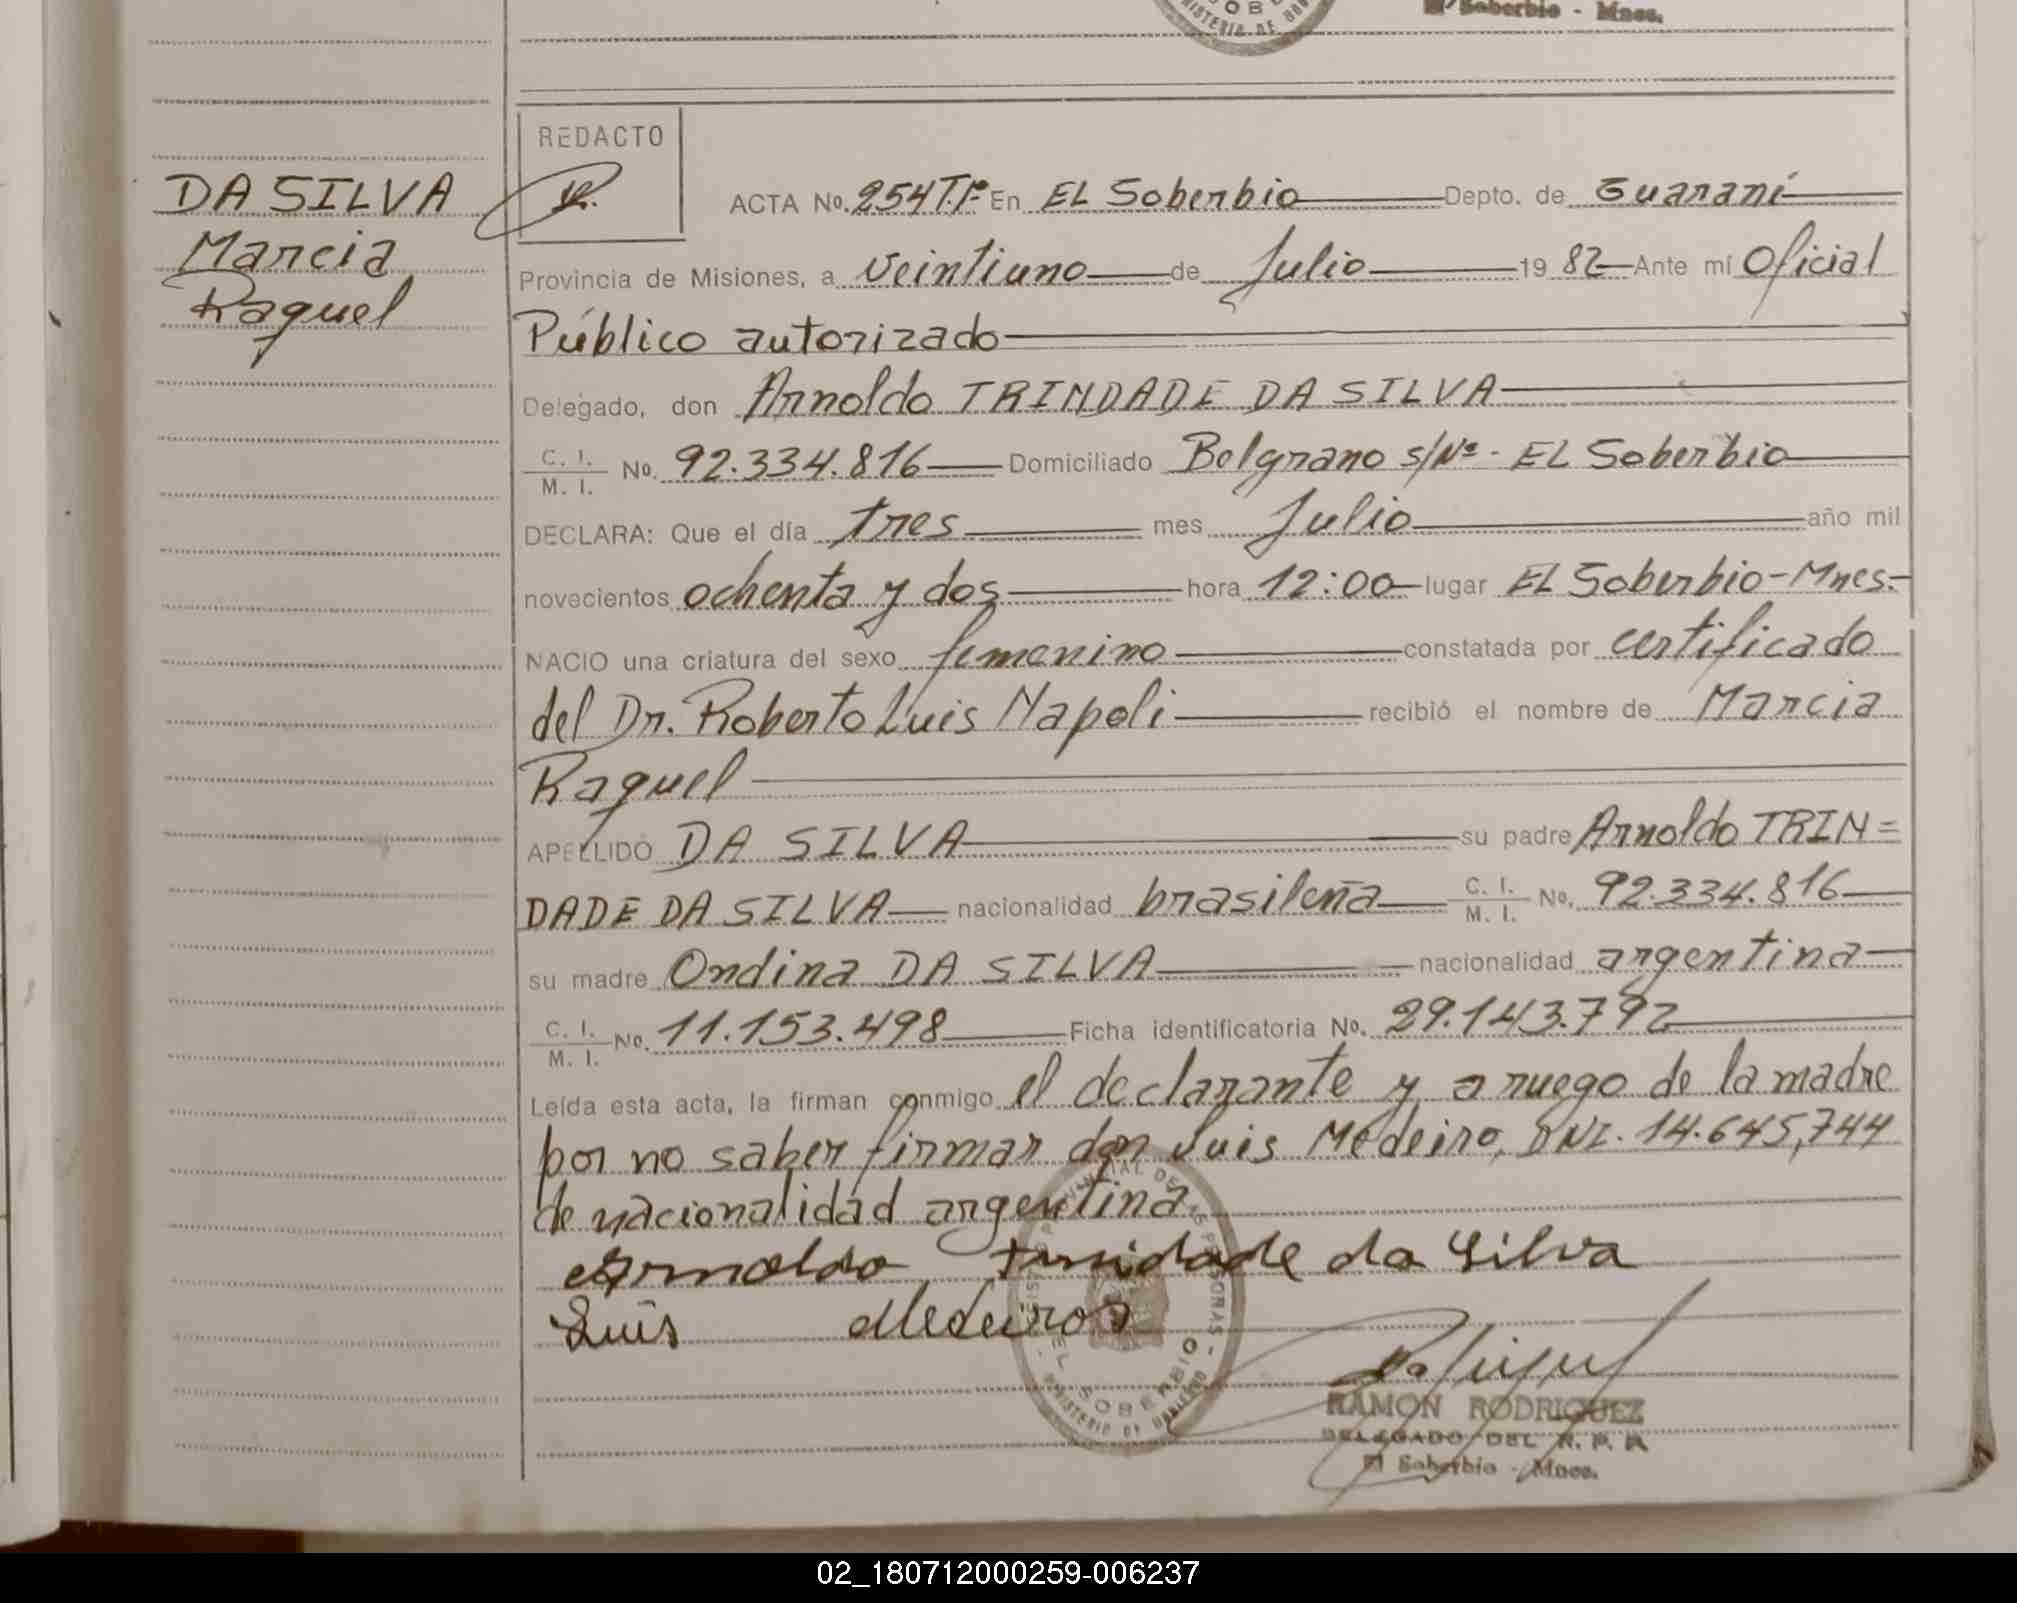 SOBE
MINISTERIO DE GOB
El Soberbio - Mnes.
REDACTO
DA SILVA
Marcia
Raquel
ACTA No. 254 T.Iº En EL Soberbio Depto. de Guaraní
Provincia de Misiones, a veintiuno de Julio 19 82 Ante mí Oficial
Público autorizado
Delegado, don Arnoldo TRINDADE DA SILVA
C. I. M. I. No. 92.334.816 Domiciliado Belgrano s/Nº - EL Soberbio
DECLARA: Que el día tres mes Julio año mil
novecientos ochenta y dos hora 12:00 lugar EL Soberbio-Mnes.-
NACIO una criatura del sexo femenino constatada por certificado
del Dr. Roberto Luis Napoli recibió el nombre de Marcia
Raquel
APELLIDO DA SILVA su padre Arnoldo TRIN=
DADE DA SILVA nacionalidad brasileña C. I. M. I. No. 92.334.816
su madre Ondina DA SILVA nacionalidad argentina
C. I. M. I. No. 11.153.498 Ficha identificatoria No. 29.143.792
Leída esta acta, la firman conmigo el declarante y a ruego de la madre
por no saber firmar don Luis Medeiro, DNI. 14.645,744
de nacionalidad argentina.
Arnoldo trindade da Silva
Luis Medeiros
EL SOBERBIO
MINISTERIO DE GOBIERNO
RAMON RODRIGUEZ
DELEGADO DEL R. P. P.
El Soberbio - Mnes.
02_180712000259-006237